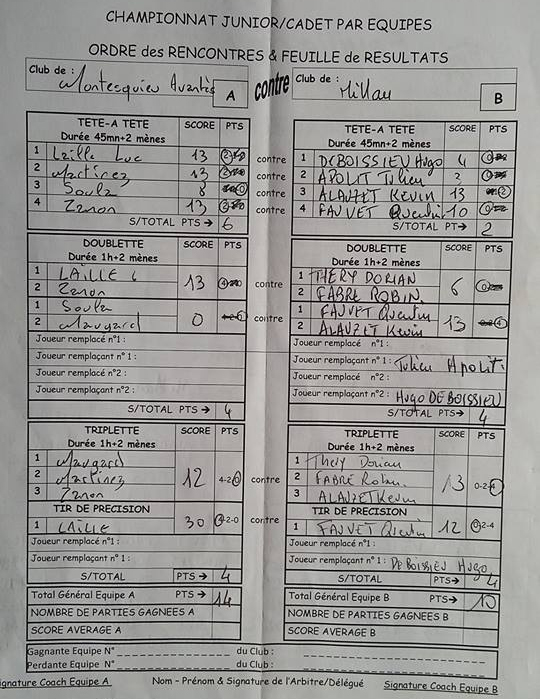 CHAMPIONNAT JUNIOR/CADET PAR EQUIPES
ORDRE des RENCONTRES & FEUILLE de RESULTATS
Club de : Montesquieu Avantès A contre Club de : Millau B
TETE-A TETE SCORE PTS TETE-A TETE SCORE PTS
Durée 45mn+2 mènes Durée 45mn+2 mènes
1 Laille Luc 13 2 contre 1 DEBOISSIEU Hugo 4 0
2 Martinez 13 2 contre 2 APOLIT Julien 0
3 Soula 8 0 contre 3 ALAUZET Kevin 13 2
4 Zanon 13 2 contre 4 FAUVET Quentin 10 0
S/TOTAL PTS→ 6 S/TOTAL PT→ 2
DOUBLETTE SCORE PTS DOUBLETTE SCORE PTS
Durée 1h+2 mènes Durée 1h+2 mènes
1 LAILLE L 13 4 contre 1 THERY DORIAN 6 0
2 Zanon 2 FABRE ROBIN
1 Soula 0 contre 1 FAUVET Quentin 13 4
2 Maugard 2 ALAUZET Kevin
Joueur remplacé n°1 : Joueur remplacé n°1 :
Joueur remplaçant n° 1 : Joueur remplaçant n°1 : Julien Apolit
Joueur remplacé n°2 : Joueur remplacé n°2 :
Joueur remplaçant n°2 : Joueur remplaçant n°2 : Hugo DEBOISSIEU
S/TOTAL PTS→ 4 S/TOTAL PTS→ 4
TRIPLETTE SCORE PTS TRIPLETTE SCORE PTS
Durée 1h+2 mènes Durée 1h+2 mènes
1 Maugard 1 Thery Dorian
2 Martinez 12 4-2-0 contre 2 FABRE Robin 13 0-2-4
3 Zanon 3 ALAUZET Kevin
TIR DE PRECISION TIR DE PRECISION
1 LAILLE 30 4-2-0 contre 1 FAUVET Quentin 12 0-2-4
Joueur remplacé n°1 : Joueur remplacé n°1 :
Joueur remplaçant n° 1 : Joueur remplaçant n°1 : DEBOISSIEU Hugo
S/TOTAL PTS→ 4 S/TOTAL PTS→ 4
Total Général Equipe A PTS→ 14 Total Général Equipe B PTS→ 10
NOMBRE DE PARTIES GAGNEES A NOMBRE DE PARTIES GAGNEES B
SCORE AVERAGE A SCORE AVERAGE B
Gagnante Equipe N° du Club :
Perdante Equipe N° du Club :
ignature Coach Equipe A Nom - Prénom & Signature de l'Arbitre/Délégué Signature Coach Equipe B